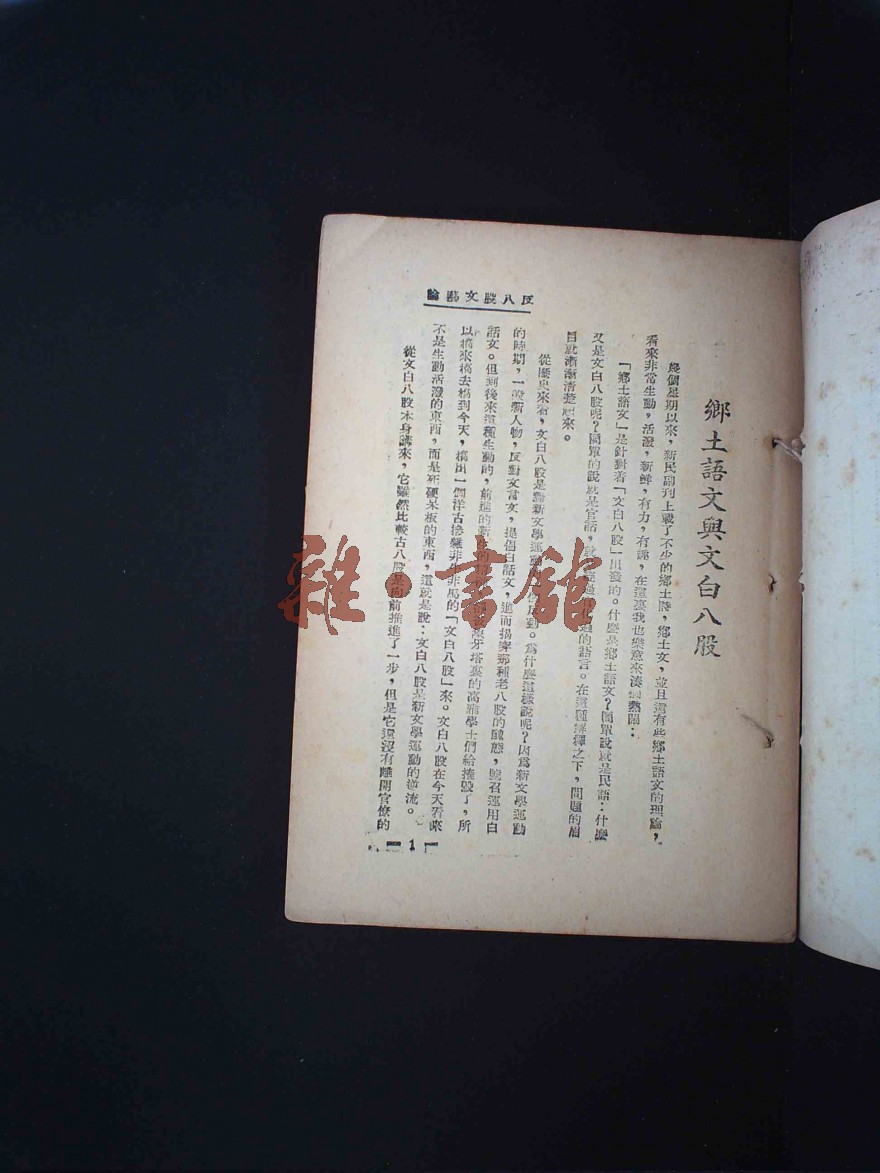 反八股文藝論
鄉土語文與文白八股
幾個星期以來，新民副刊上載了不少的鄉土詩，鄉土文，並且還有些鄉土語文的理論，
看來非常生動，活潑，新鮮，有力，有趣，在這裏我也樂意來湊個熱鬧：
「鄉土語文」是針對著「文白八股」出發的。什麼是鄉土語文？簡單說就是民語；什麼
又是文白八股呢？簡單的說就是官話，的語言。在這種解釋之下，問題的眉
目就漸漸清楚起來。
從歷史來看，文白八股是新文學運動反動。為什麼這樣說呢？因為新文學運動
的時期，一般新人物，反對文言文，提倡白話文，進而揭穿那種老八股的醜態，號召運用白
話文。但到後來這種生動的，前進的新牙塔裏的高雅學士們給摧毀了，所
以搞來搞去搞到今天，搞出一個洋古非馬的「文白八股」來。文白八股在今天看來
不是生動活潑的東西，而是死硬呆板的東西，這就是說：文白八股是新文學運動的逆流。
從文白八股本身講來，它雖然比較古八股是向前推進了一步，但是它還沒有離開官僚的
1
雜·書館